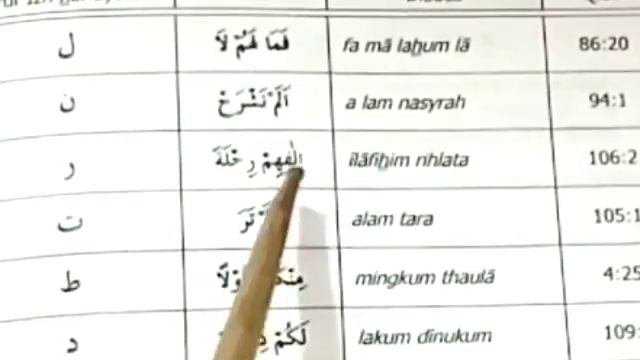 ل فَمَا لَهُمْ لَا fa mā lahum lā 86:20
ن اَلَمْ نَشْرَحْ a lam nasyrah 94:1
ر اٖلٰفِهِمْ رِحْلَةَ īlāfihim rihlata 106:2
ت تَرَ alam tara 105:1
ط mingkum thaulā 4:25
د لَكُمْ lakum dīnukum 109: